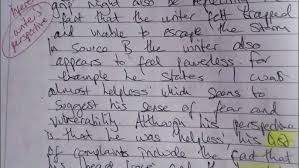 might also be
fact that the writer felt trapped
and unable to escape the storm
in Source B the writer also
appears to feel powerless. for
example he states 'I was
almost helpless' which seems to
suggest his sense of fear and
vulnerability. Although his perspective
is that he was 'helpless' his list
of complaints include the fact that
writer's
perspective